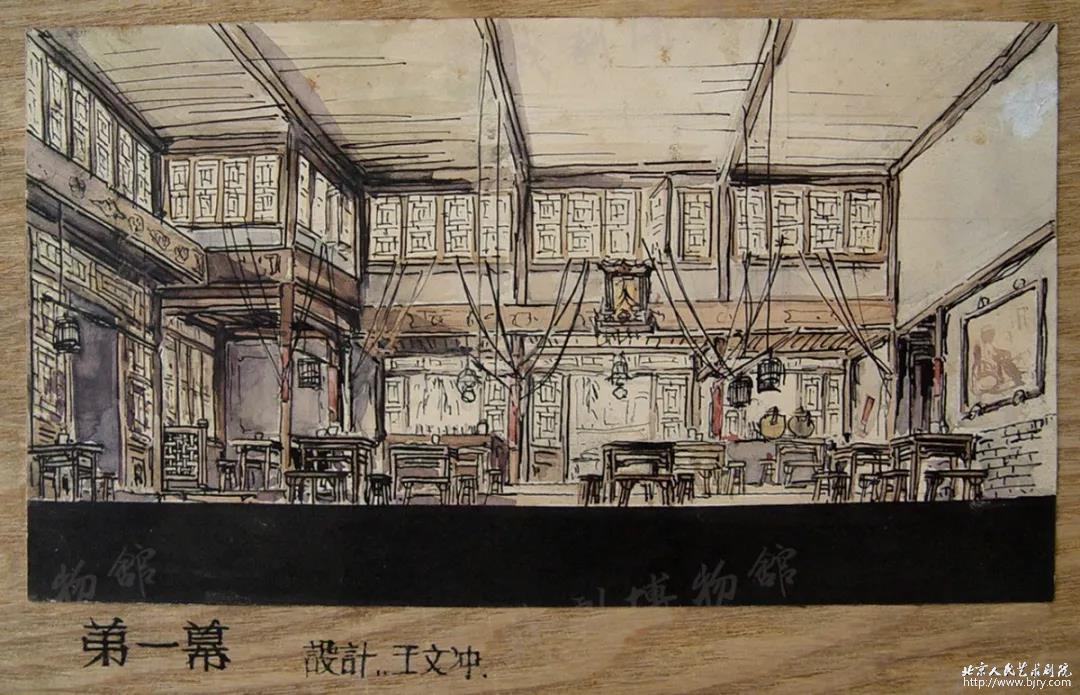 物館
博物館
第一幕
設計：王文冲.
北京人民艺术剧院
http://www.bjry.com